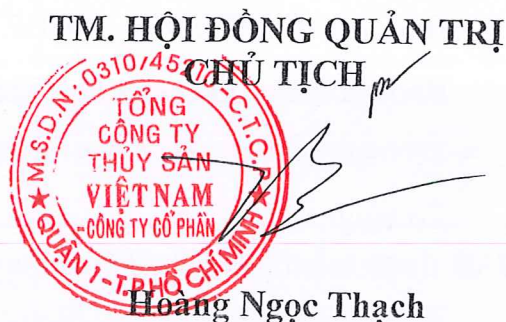 TM. HỘI ĐỒNG QUẢN TRỊ
CHỦ TỊCH
M.S.D.N: 0310745210-C.T.C.P
TỔNG
CÔNG TY
THỦY SẢN
VIỆT NAM
-CÔNG TY CỔ PHẦN
QUẬN 1-T.P HỒ CHÍ MINH
Hoàng Ngọc Thạch